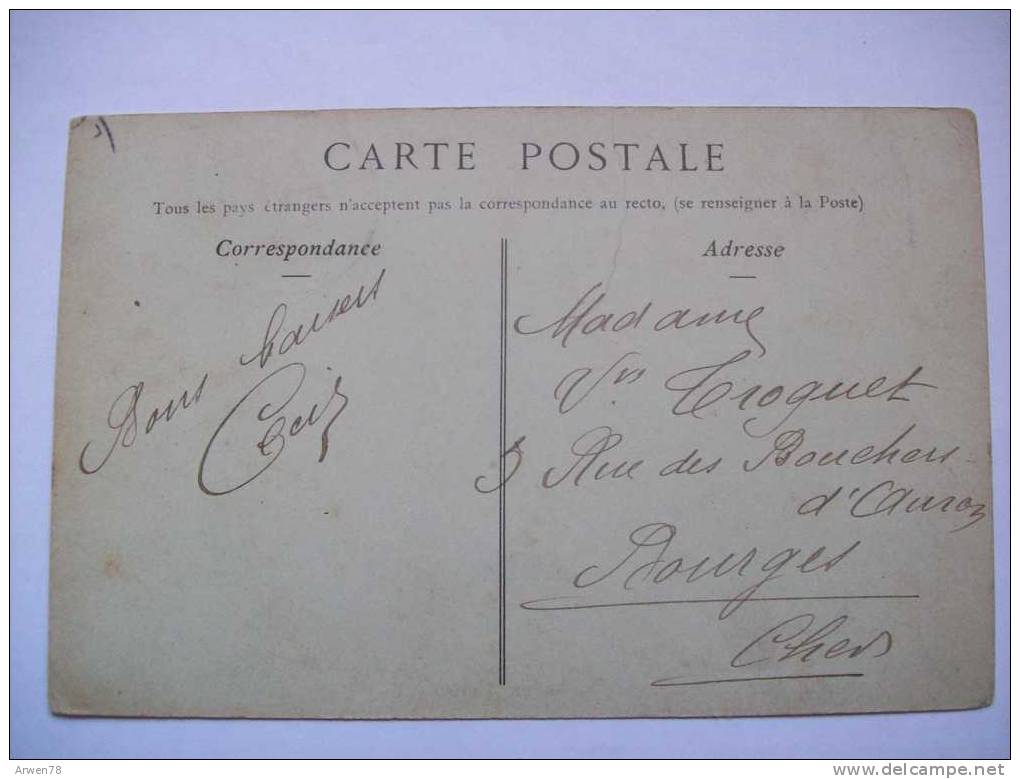 CARTE POSTALE
Tous les pays étrangers n'acceptent pas la correspondance au recto, (se renseigner à la Poste)
Correspondance
Bons baisers
Adresse
Madame
Vve Troquet
5 Rue des Bouchers-
d'Auron
Bourges
Cher
Arwen78
delcampe.net